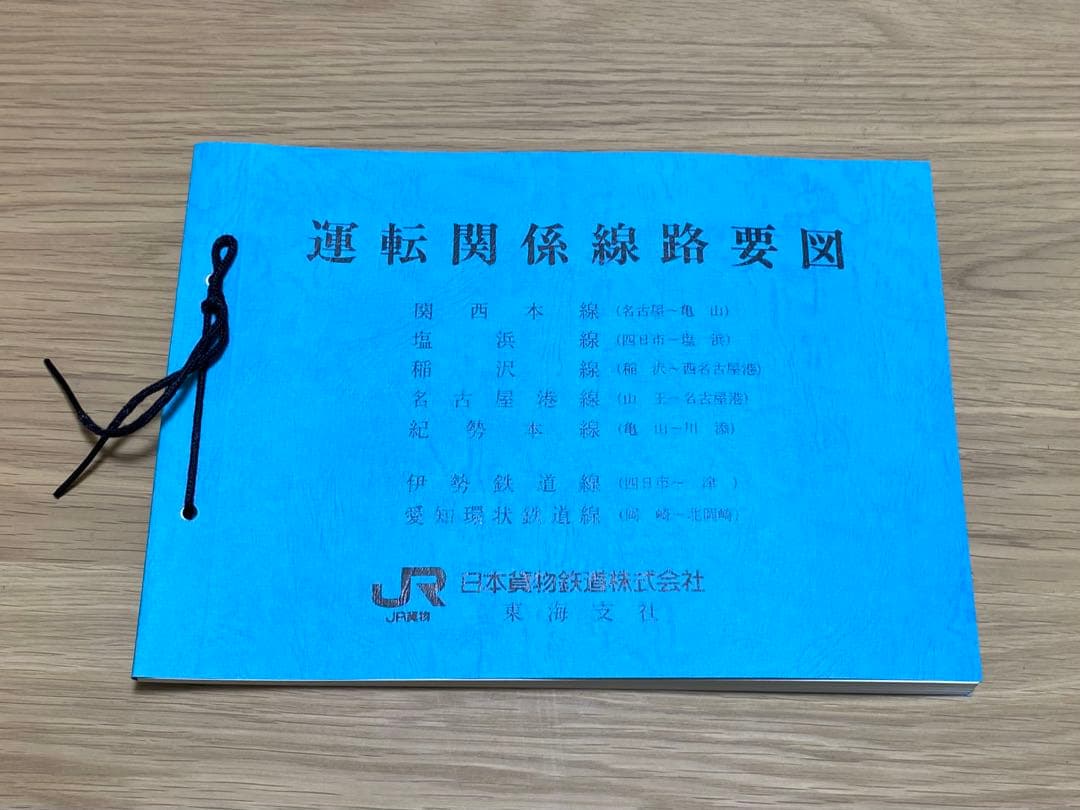 運転関係線路要図
関西本線 (名古屋~亀山)
塩浜線 (四日市~塩浜)
稲沢線 (稲沢~西名古屋港)
名古屋港線 (山王~名古屋港)
紀勢本線 (亀山~川添)
伊勢鉄道線 (四日市~津)
愛知環状鉄道線 (岡崎~北岡崎)
JR 日本貨物鉄道株式会社
JR貨物 東海支社